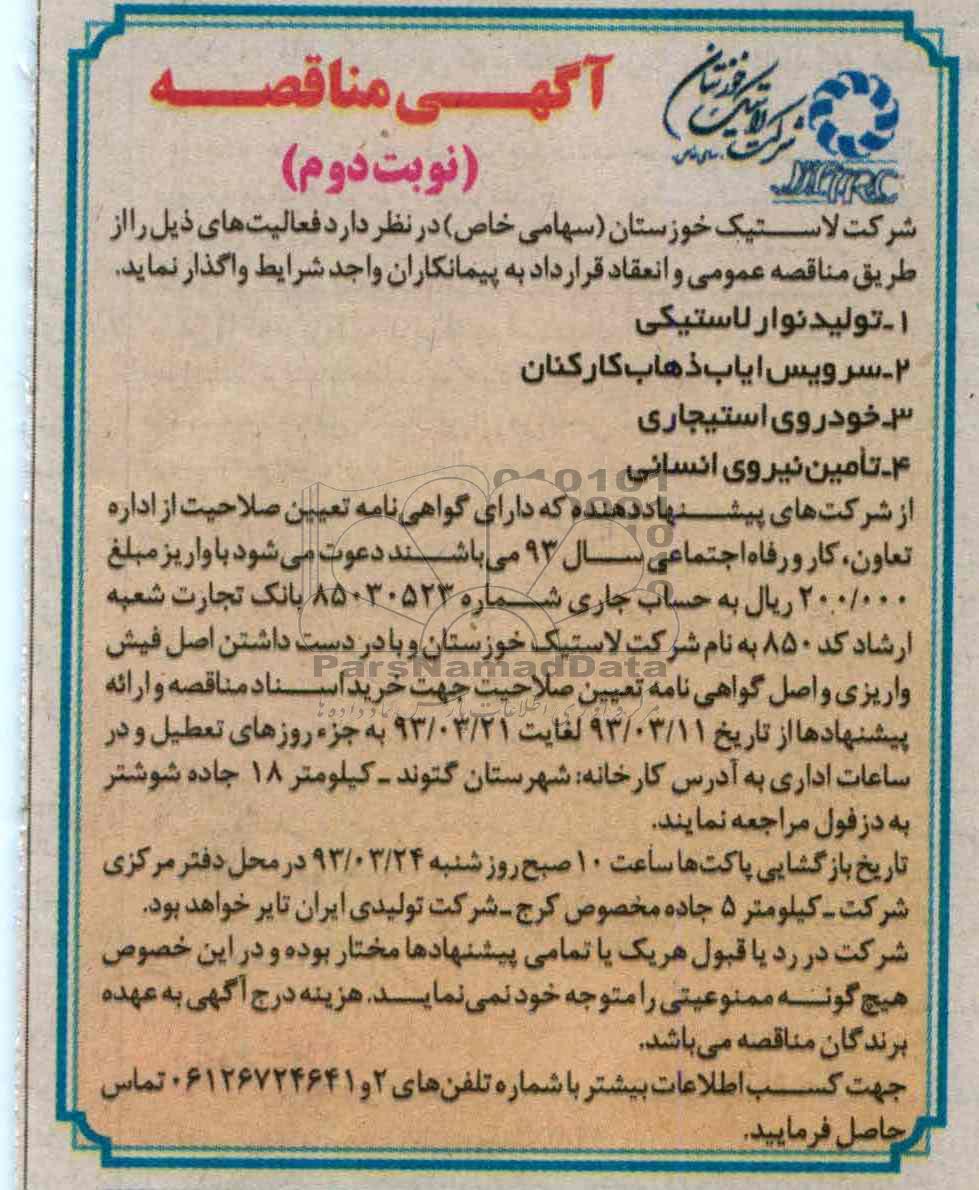 شرکت لاستیک خوزستان
سهامی خاص
آگهی مناقصه
(نوبت دوم)
شرکت لاستیک خوزستان (سهامی خاص) در نظر دارد فعالیت‌های ذیل را از
طریق مناقصه عمومی و انعقاد قرارداد به پیمانکاران واجد شرایط واگذار نماید.
۱-تولید نوار لاستیکی
۲-سرویس ایاب ذهاب کارکنان
۳-خودروی استیجاری
۴-تأمین نیروی انسانی
از شرکت‌های پیشنهاددهنده که دارای گواهی‌نامه تعیین صلاحیت از اداره
تعاون، کار و رفاه اجتماعی سال ۹۳ می‌باشند دعوت می‌شود با واریز مبلغ
۲۰۰/۰۰۰ ریال به حساب جاری شماره ۸۵۰۳۰۵۲۳ بانک تجارت شعبه
ارشاد کد ۸۵۰ به نام شرکت لاستیک خوزستان و با در دست داشتن اصل فیش
ParsNamadData
واریزی و اصل گواهی نامه تعیین صلاحیت جهت خرید اسناد مناقصه و ارائه
پیشنهادها از تاریخ ۹۳/۰۳/۱۱ لغایت ۹۳/۰۳/۲۱ به جزء روزهای تعطیل و در
ساعات اداری به آدرس کارخانه: شهرستان گتوند -کیلومتر ۱۸ جاده شوشتر
به دزفول مراجعه نمایند.
تاریخ بازگشایی پاکت‌ها ساعت ۱۰ صبح روز شنبه ۹۳/۰۳/۲۴ در محل دفتر مرکزی
شرکت -کیلومتر ۵ جاده مخصوص کرج -شرکت تولیدی ایران تایر خواهد بود.
شرکت در رد یا قبول هریک یا تمامی پیشنهادها مختار بوده و در این خصوص
هیچ گونه ممنوعیتی را متوجه خود نمی‌نماید. هزینه درج آگهی به عهده
برندگان مناقصه می‌باشد.
جهت کسب اطلاعات بیشتر با شماره تلفن‌های ۲ و ۰۶۱۲۶۷۲۴۶۴۱ تماس
حاصل فرمایید.